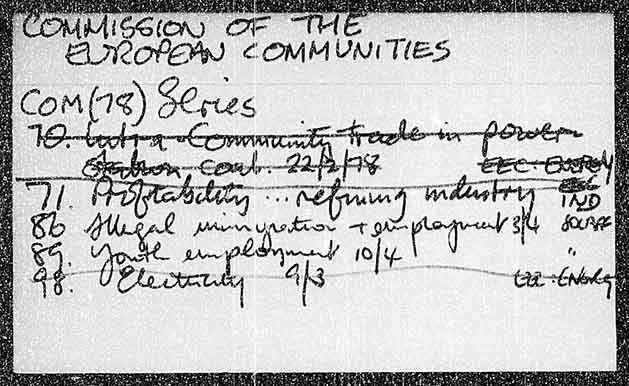 COMMISSION OF THE
EUROPEAN COMMUNITIES
COM(78) Series
70. Intra-Community Trade in power
station coal. 22/2/78 EEC. ENERGY
71. Profitability ... refining industry IND
86 Illegal immigration + employment 3/4
89. Youth employment 10/4 "
98. Electricity 9/3 EEC. ENERGY